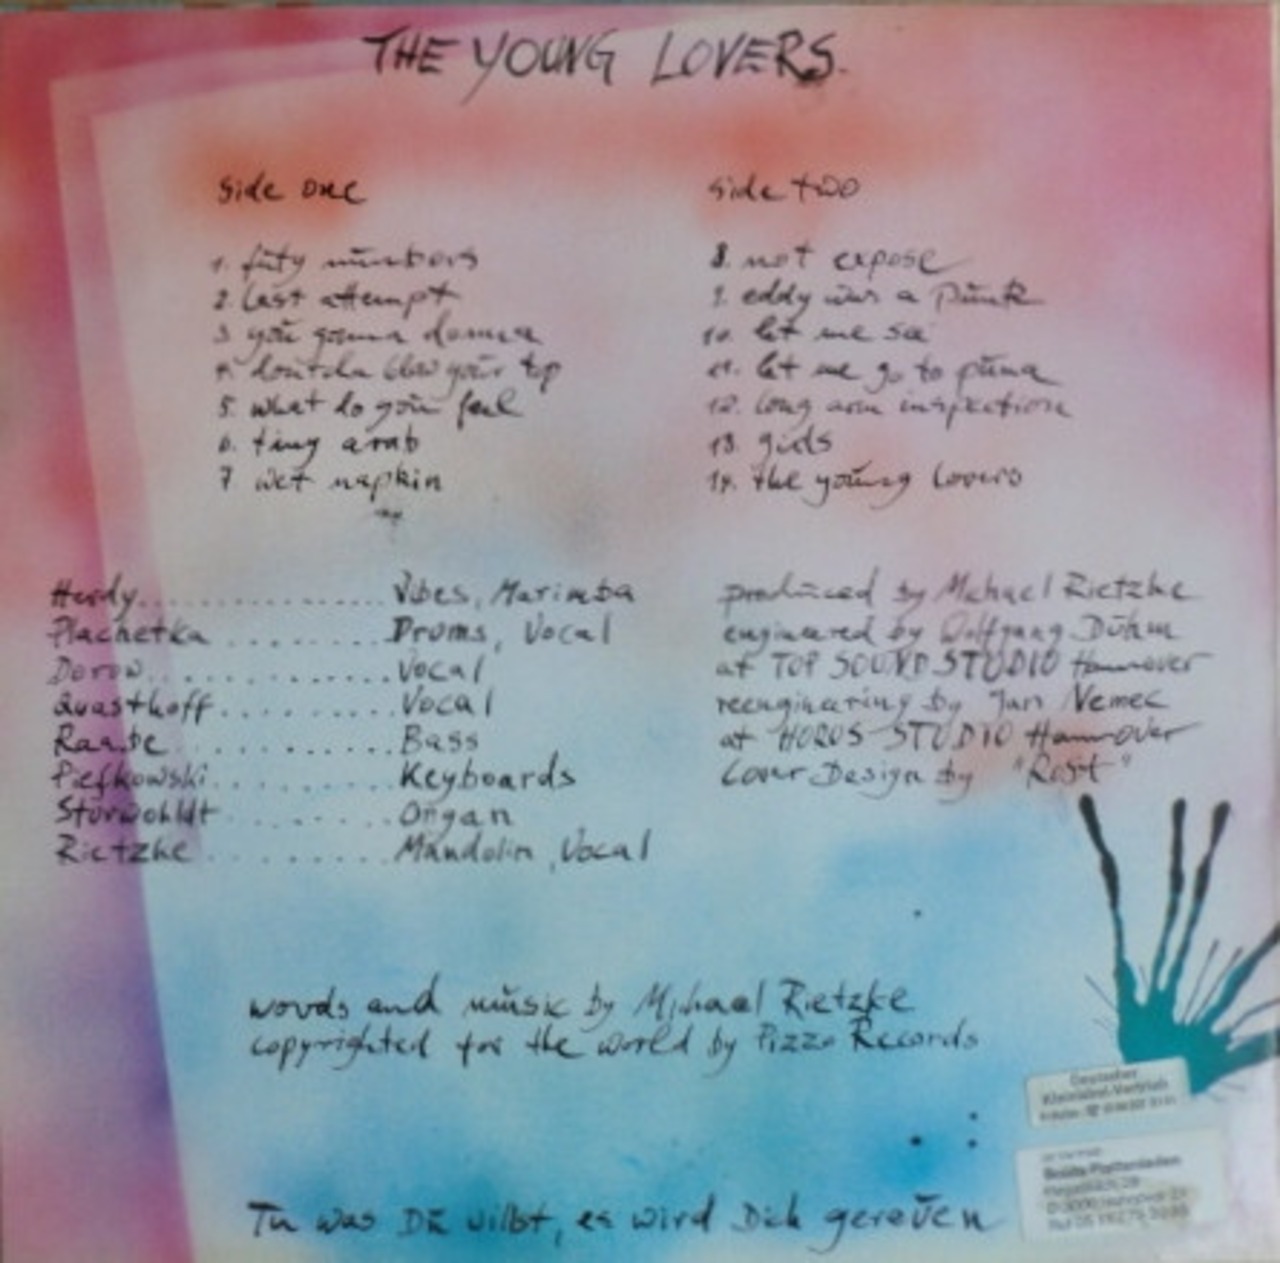 THE YOUNG LOVERS.
side one
1. fūty nūmbors
2. last attempt
3 yoū gonna domna
4. blow yoūr top
5. what do yoū feel
6. tiny arab
7 wet napkin
side two
8. not expose
9. eddy was a pūnk
10. let me see
11. let me go to pūma
12. long arm inspektion
13. girls
14. the yoūng lovers
Hendy............... Vibes, Marimba
Plachetka ......... Drums, Vocal
Dorow............... Vocal
Quasthoff.......... Vocal
Raabe............... Bass
Piefkowski.......... Keyboards
Sturwohldt ......... Organ
Rietzke ............ Mandolin, Vocal
prodūced by Michael Rietzke
engineered by Wolfgang Dūhm
at TOP SOUND STUDIO Hannover
reengineering by Jan Nemec
at HOROS STUDIO Hannover
Cover Design by "Rost"
words and mūsic by Michael Rietzke
copyrighted for the world by Pizza Records
Tu was Dū willst, es wird Dich gereūen
Deutscher
Kleinlabel-Vertrieb